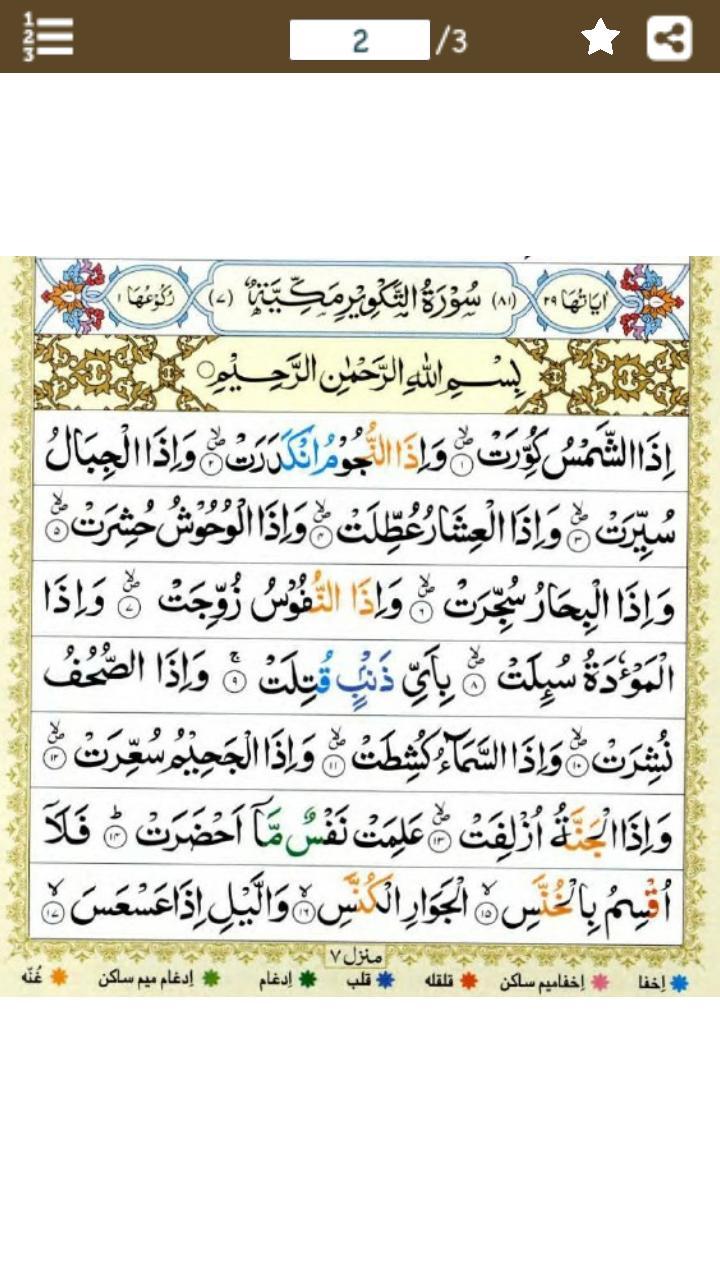 1
2
3
2 /3
اٰيَاتُهَا ٢٩ (٨١) سُوۡرَةُ التَّكۡوِيۡرِ مَكِّيَّةٌ (٧) رُكُوۡعُهَا ١
بِسۡمِ اللهِ الرَّحۡمٰنِ الرَّحِيۡمِ
اِذَا الشَّمۡسُ كُوِّرَتۡ ۙ‏ ﴿١﴾ وَاِذَا النُّجُوۡمُ انۡكَدَرَتۡ ۙ‏ ﴿٢﴾ وَاِذَا الۡجِبَالُ
سُيِّرَتۡ ۙ‏ ﴿٣﴾ وَاِذَا الۡعِشَارُ عُطِّلَتۡ ۙ‏ ﴿٤﴾ وَاِذَا الۡوُحُوۡشُ حُشِرَتۡ ۙ‏ ﴿٥﴾
وَاِذَا الۡبِحَارُ سُجِّرَتۡ ۙ‏ ﴿٦﴾ وَاِذَا النُّفُوۡسُ زُوِّجَتۡ ۙ‏ ﴿٧﴾ وَاِذَا
الۡمَوۡءٗدَةُ سُئِلَتۡ ۙ‏ ﴿٨﴾ بِاَىِّ ذَنۡۢبٍ قُتِلَتۡ ۚ‏ ﴿٩﴾ وَاِذَا الصُّحُفُ
نُشِرَتۡ ۙ‏ ﴿١٠﴾ وَاِذَا السَّمَآءُ كُشِطَتۡ ۙ‏ ﴿١١﴾ وَاِذَا الۡجَحِيۡمُ سُعِّرَتۡ ۙ‏ ﴿١٢﴾
وَاِذَا الۡجَنَّةُ اُزۡلِفَتۡ ۙ‏ ﴿١٣﴾ عَلِمَتۡ نَفۡسٌ مَّاۤ اَحۡضَرَتۡ ؕ‏ ﴿١٤﴾ فَلَاۤ
اُقۡسِمُ بِالۡخُنَّسِ ۙ‏ ﴿١٥﴾ الۡجَوَارِ الۡكُنَّسِ ۙ‏ ﴿١٦﴾ وَالَّيۡلِ اِذَا عَسۡعَسَ ۙ‏ ﴿١٧﴾
منزل ٧
اِخفا اِخفامیم ساکن قلقله قلب اِدغام اِدغام میم ساکن غُنّه